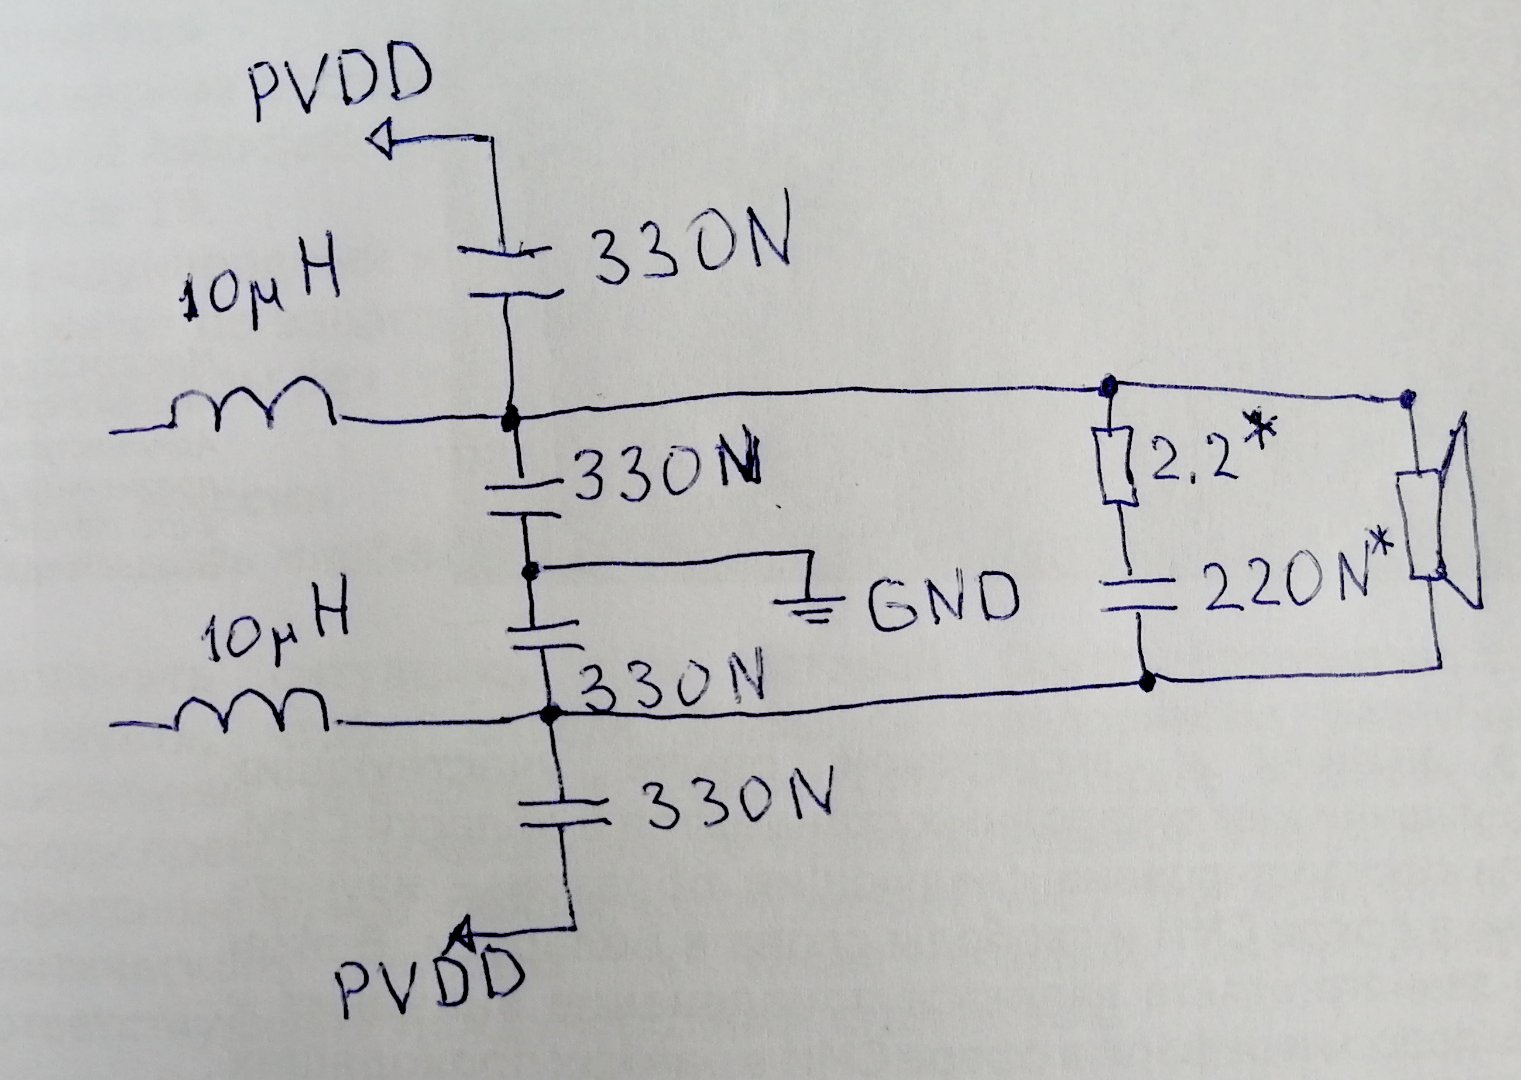 PVDD
10µH
330N
330N
2.2*
220N*
GND
10µH
330N
330N
PVDD